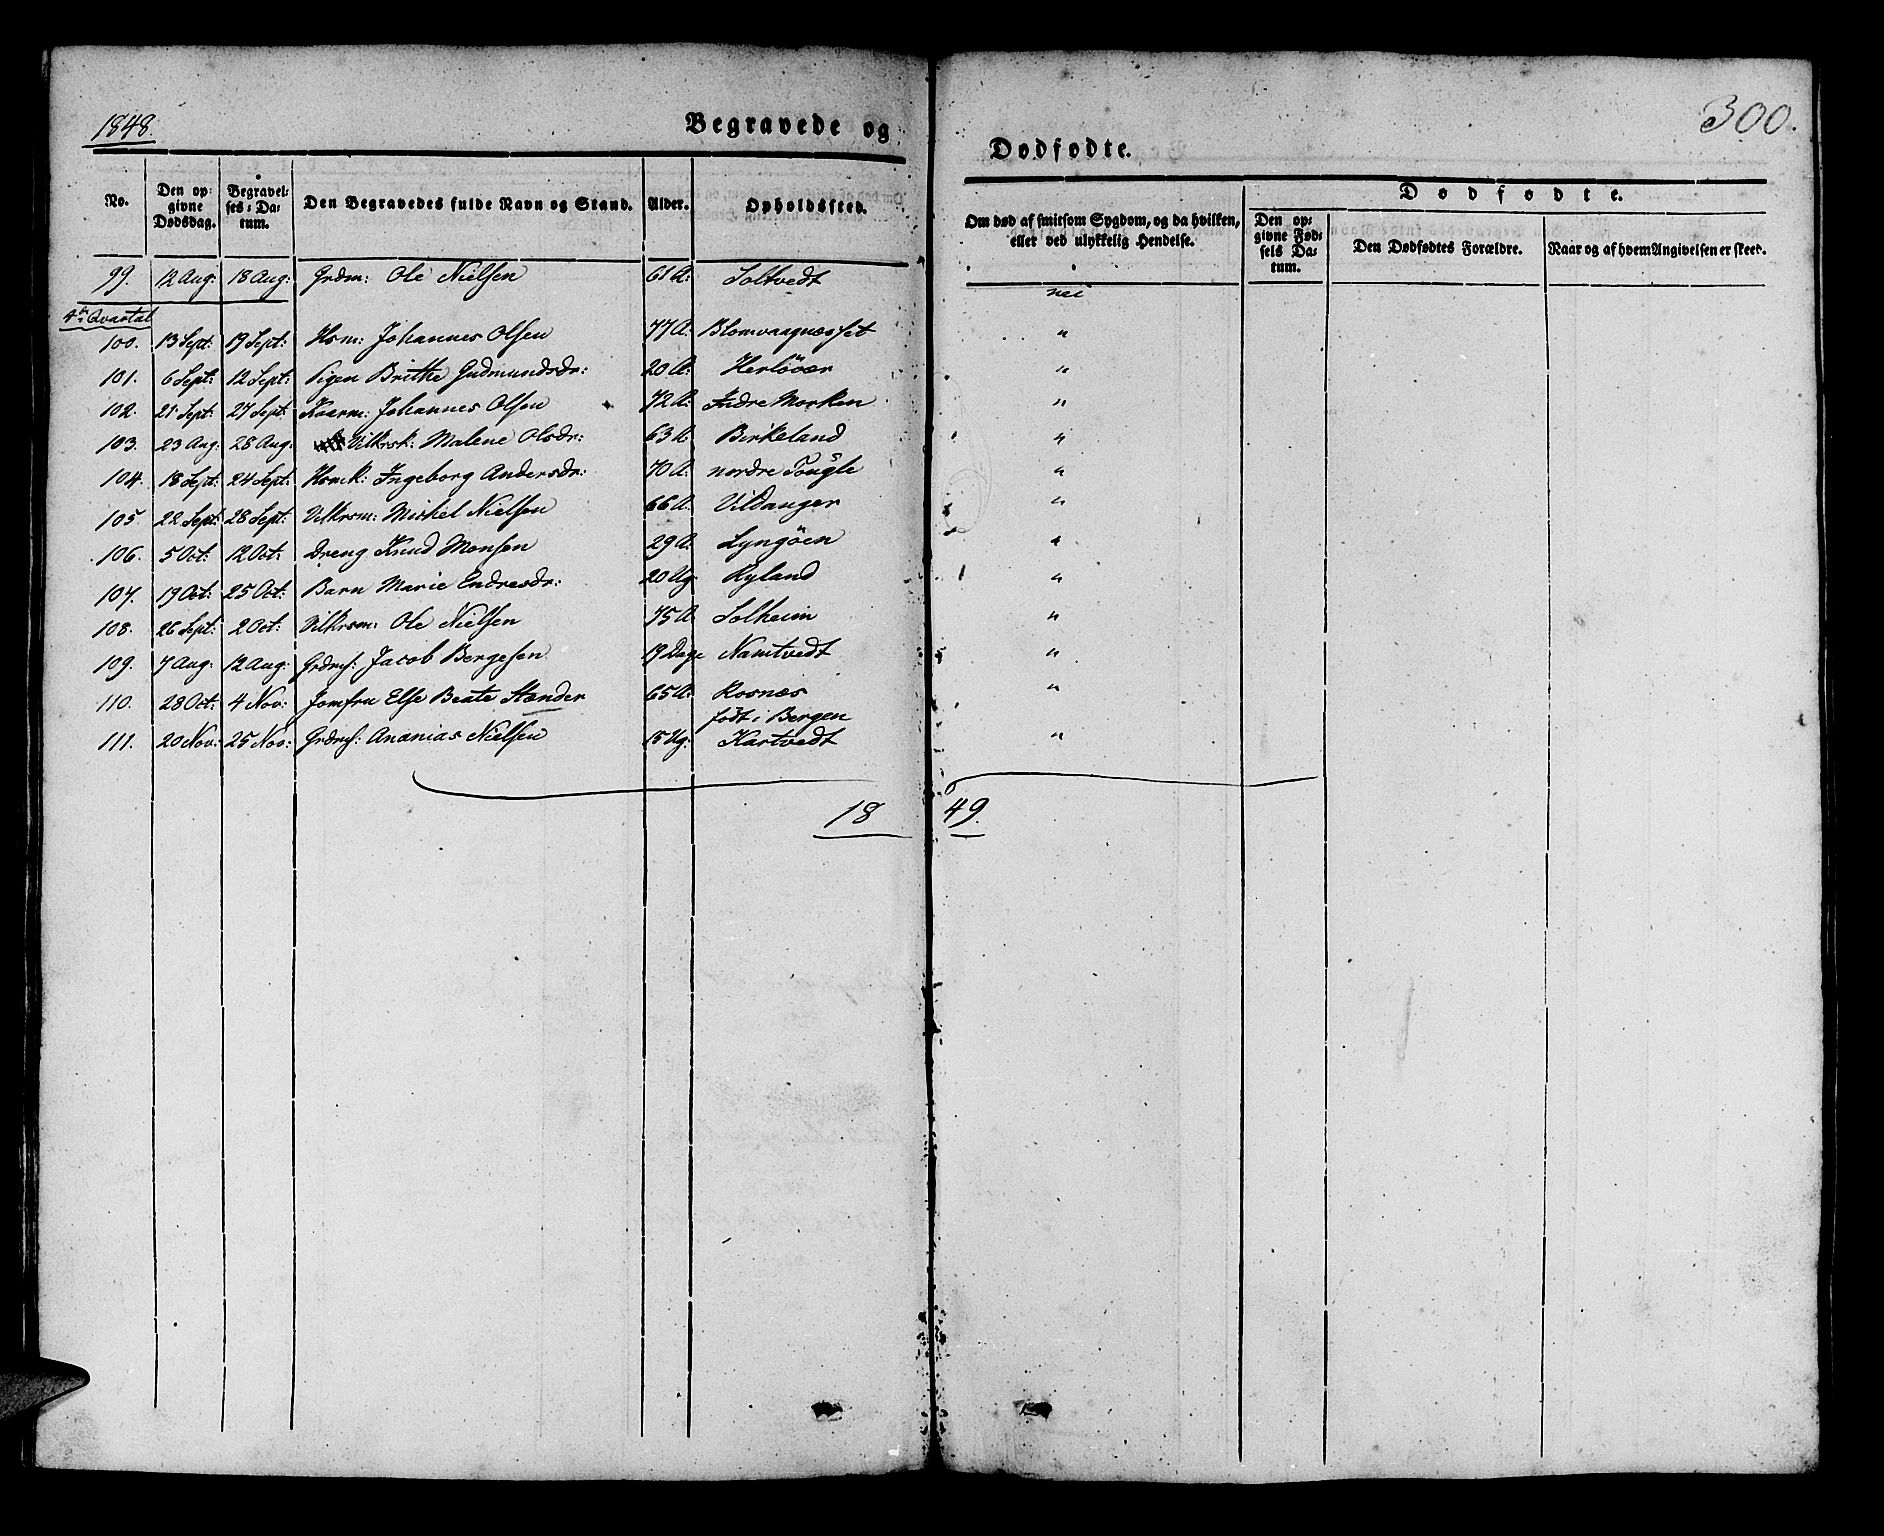 1848.
Begravede og
Dødfødte.
300.
No.
Den op-
givne
Dødsdag.
Begravel-
ses-Da-
tum.
Den Begravedes fulde Navn og Stand.
Alder.
Opholdssted.
Om død af smitsom Sygdom, og da hvilken,
eller ved ulykkelig Hendelse.
Dødfødte.
Den op-
givne Fød-
sels Da-
tum.
Den Dødfødtes Forældre.
Naar og af hvem Angivelsen er skeet.
99. 12 Aug: 18 Aug: Grdm: Ole Nielsen 61 A: Soltvedt nei
4de Qvartal
100. 13 Sept: 19 Sept: Hsm: Johannes Olsen 77 A: Blomvaagnæsset "
101. 6 Sept: 12 Sept: Pigen Brithe Gudmundsdr: 20 A: Herløvær "
102. 21 Sept: 27 Sept: Kaarm: Johannes Olsen 72 A: Indre Morken "
103. 23 Aug: 28 Aug: Vilkrsk: Malene Olsdr: 63 A: Birkeland "
104. 18 Sept: 24 Sept: Hsmk: Ingeborg Andersdr: 70 A: nordre Tougle "
105. 22 Sept: 28 Sept: Vilkrsm: Mickel Nielsen 66 A: Vildanger "
106. 5 Oct: 12 Oct: Dreng Knud Monsen 29 A: Lyngöen "
107. 19 Oct: 25 Oct: Barn Marie Endresdr: 20 Ug. Ryland "
108. 26 Sept: 2 Oct: Vilkrsm: Ole Nielsen 75 A: Solheim "
109. 7 Aug: 12 Aug: Grdms: Jacob Bergesen 19 Dage Namtvedt "
110. 28 Oct: 4 Nov: Jomfru Else Beate Stender 65 A: Rosnæs "
født i Bergen
111. 20 Nov: 25 Nov: Grdms: Ananias Nielsen 15 Ug: Kartvedt "
18 49.